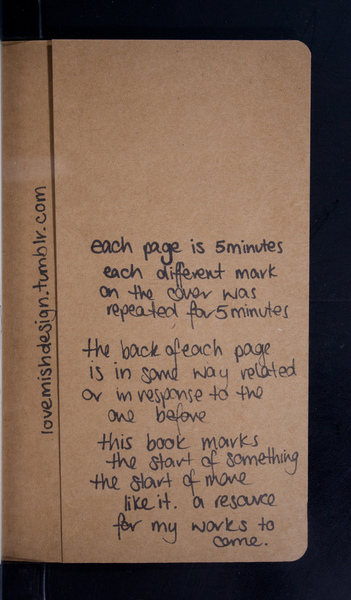 lovemishdesign.tumblr.com
each page is 5minutes
each different mark
on the cover was
repeated for 5minutes
the back of each page
is in some way related
or in response to the
one before
this book marks
the start of something
the start of more
like it. a resource
for my works to
come.